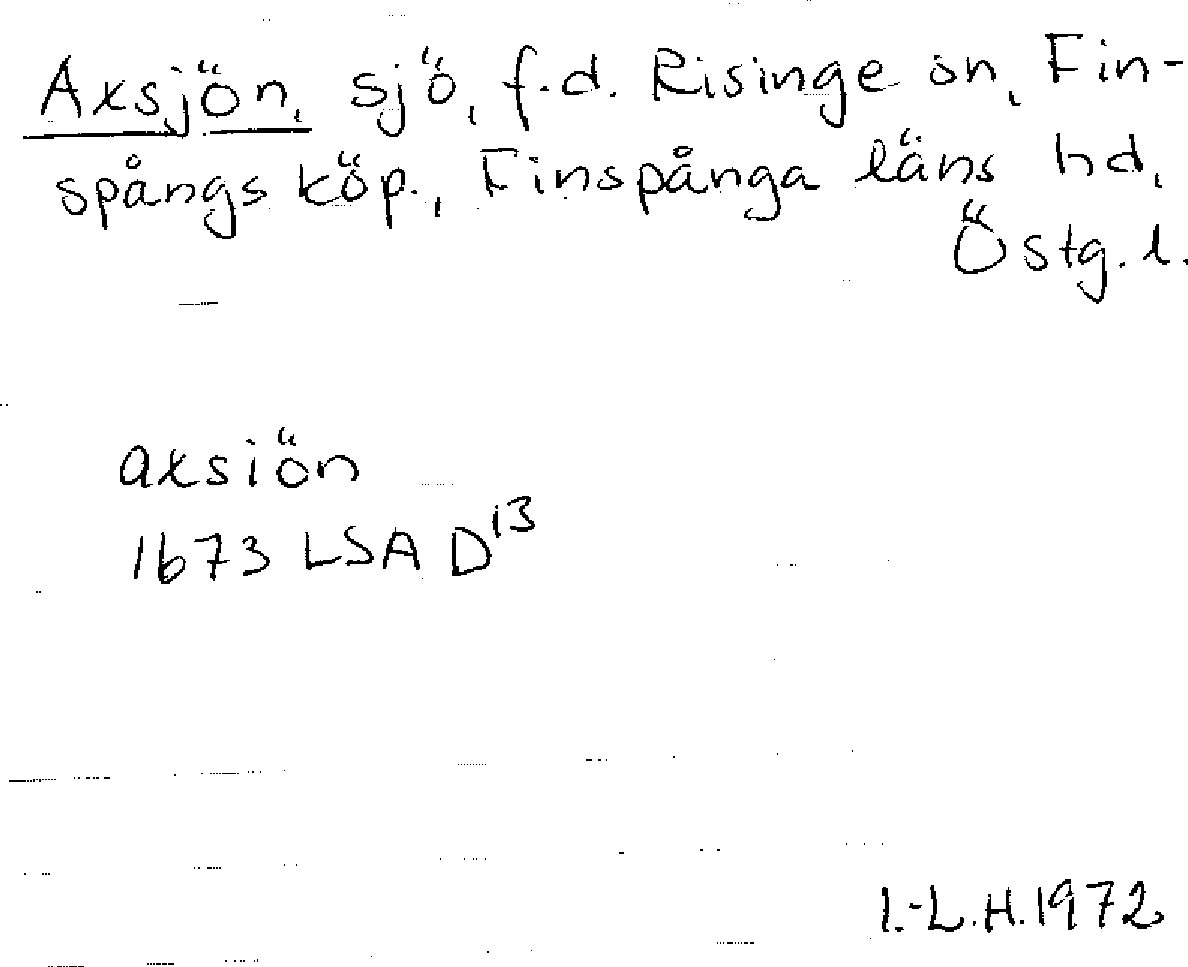 Axsjön, sjö, f.d. Risinge sn, Fin-
spångs köp., Finspånga läns hd,
Östg. l.
axsiön
1673 LSA D¹³
I.-L.H.1972